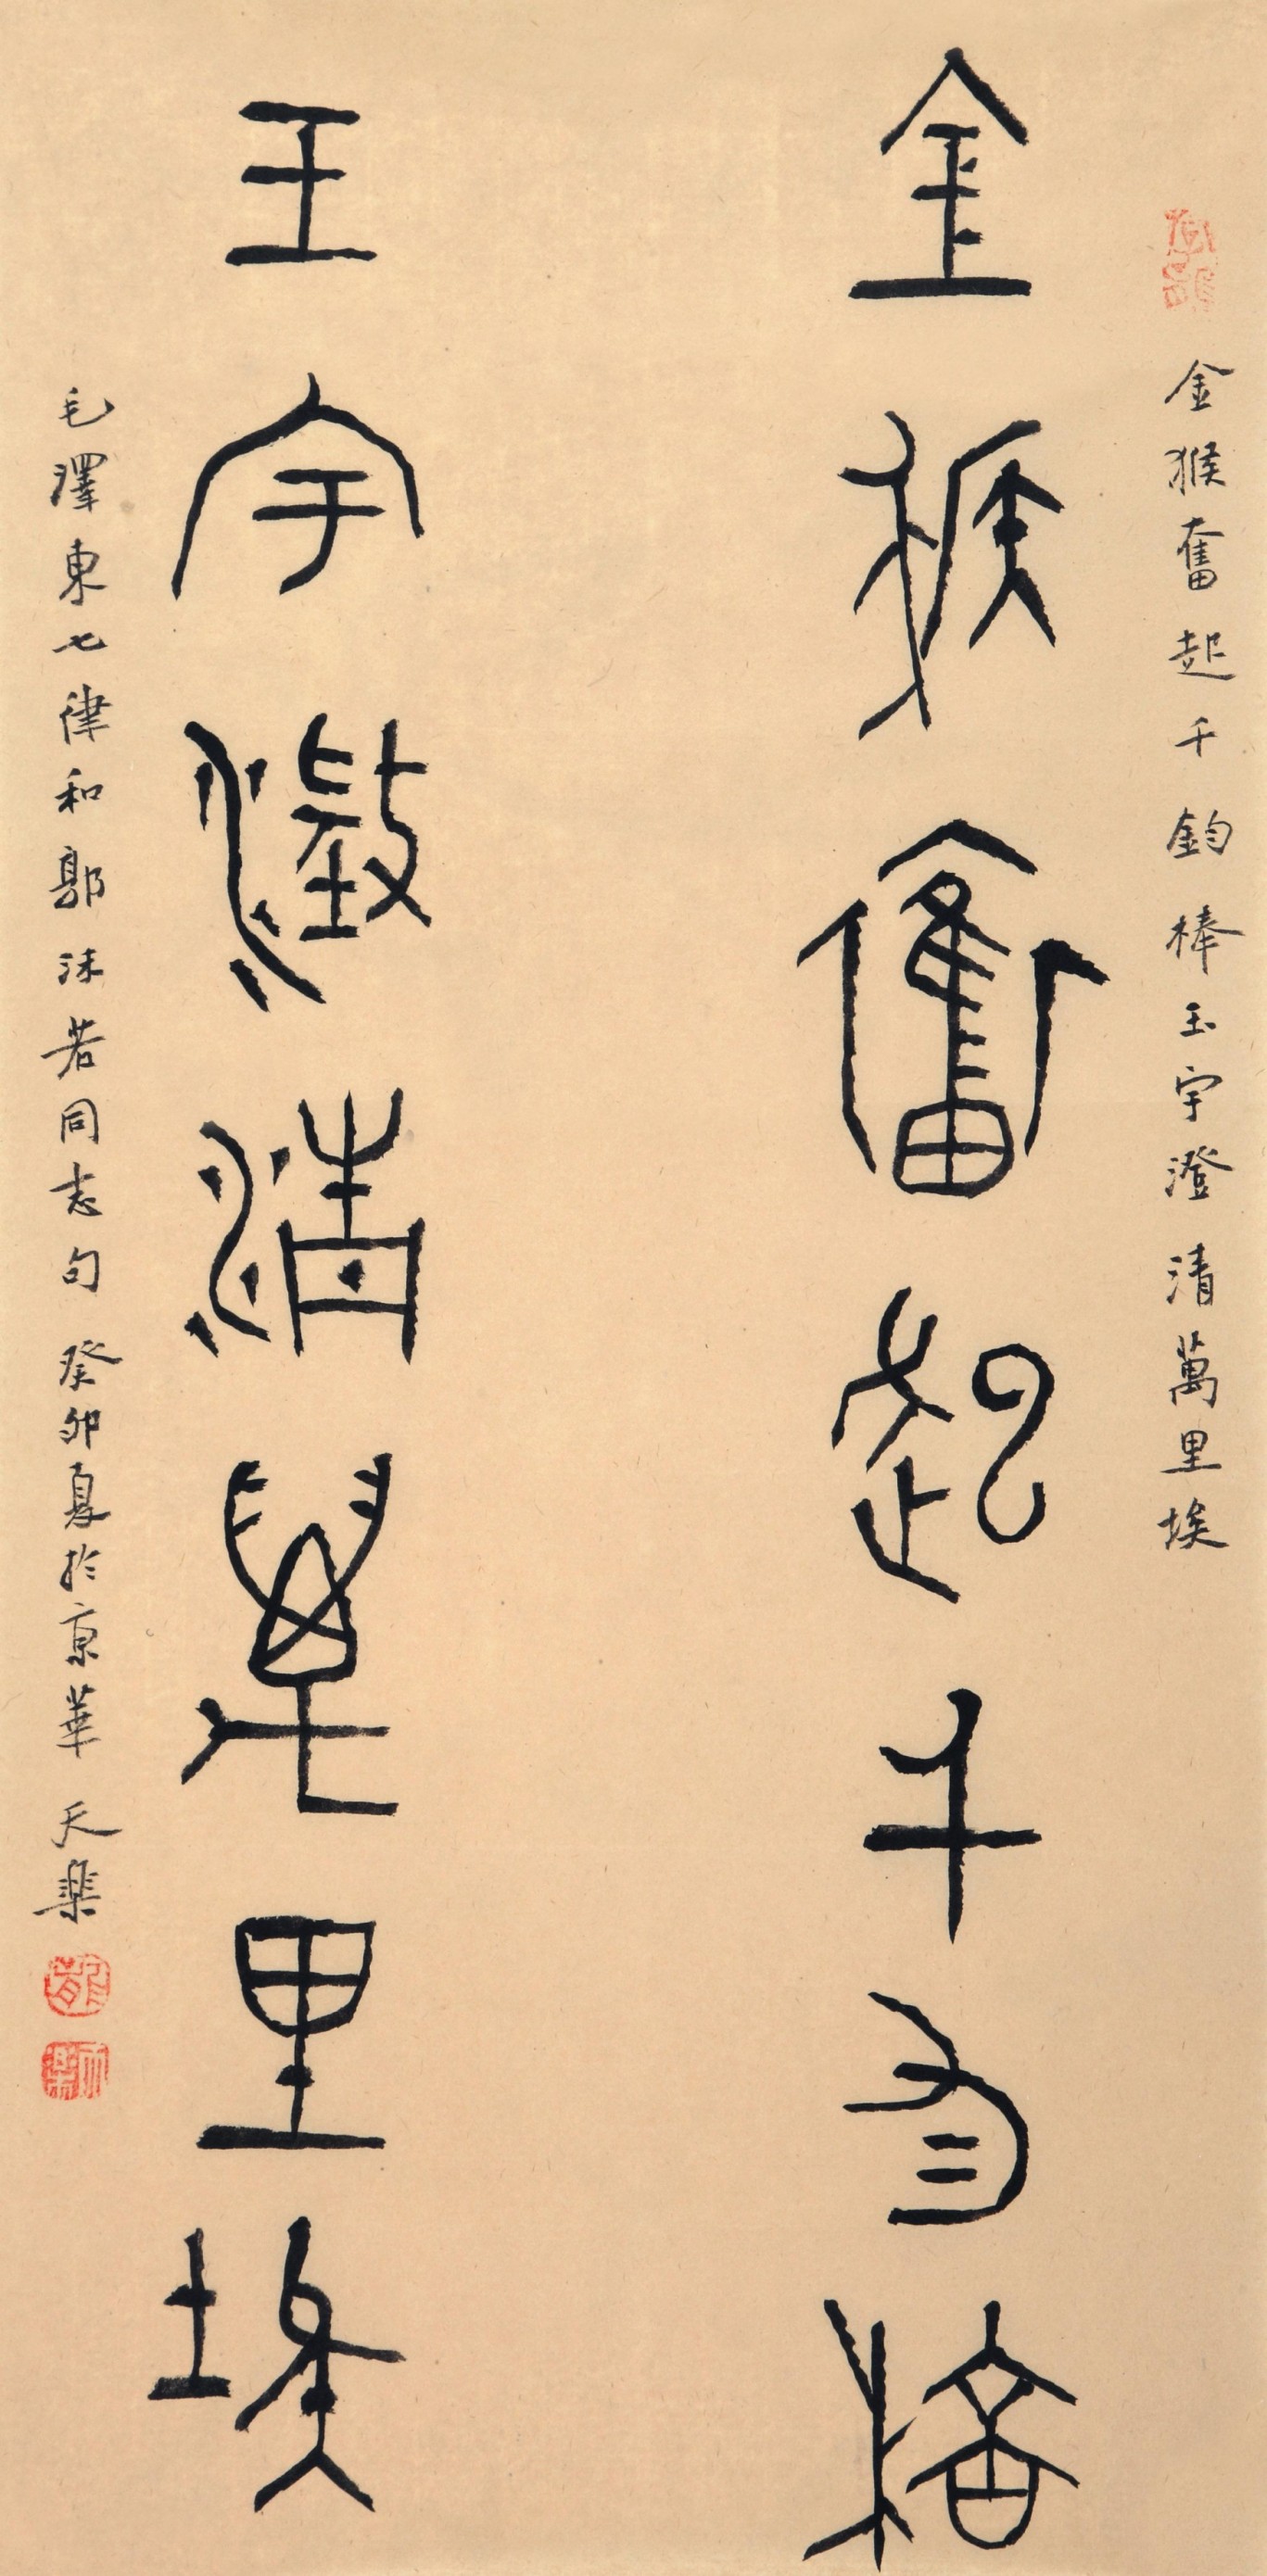 金猴奮起千鈞棒玉宇澄清萬里埃
金猴奮起千鈞棒
玉宇澂清萬里埃
毛澤東七律和郭沫若同志句 癸卯夏於京華 天樂